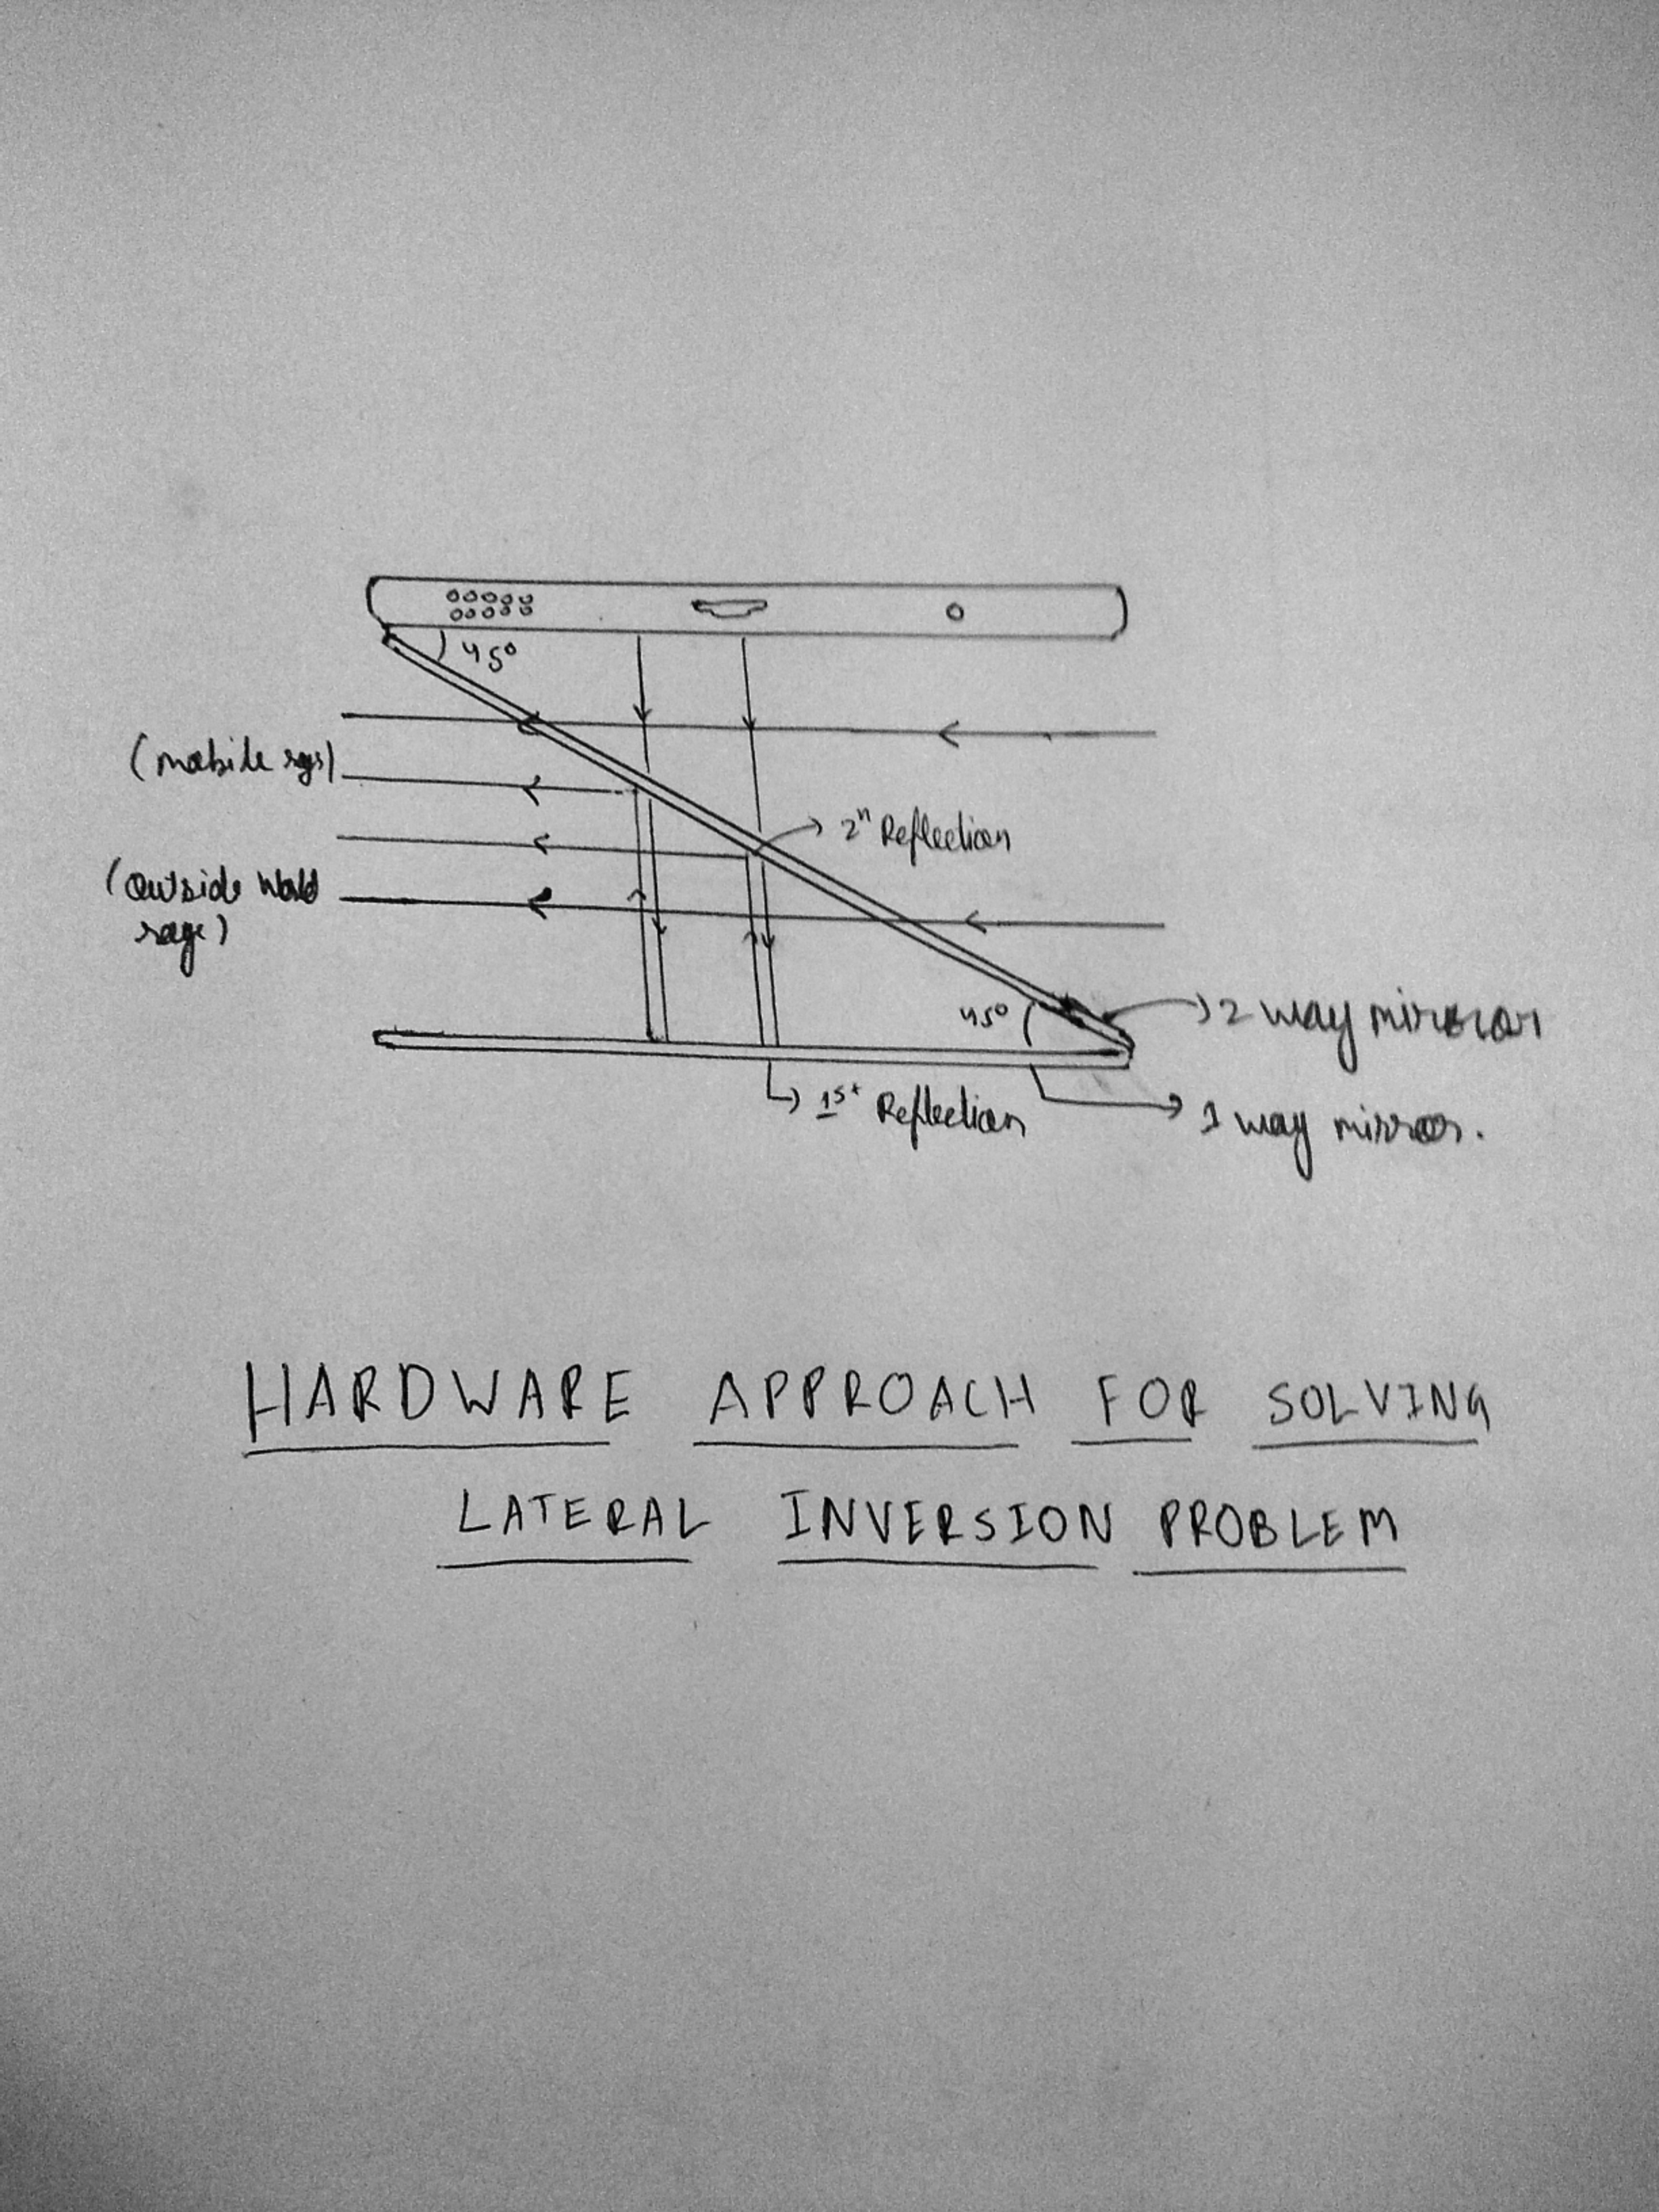 45°
(mobile rays)
2ⁿ Reflection
(outside world
rays)
45°
2 way mirror
1st Reflection
1 way mirror.
HARDWARE APPROACH FOR SOLVING
LATERAL INVERSION PROBLEM